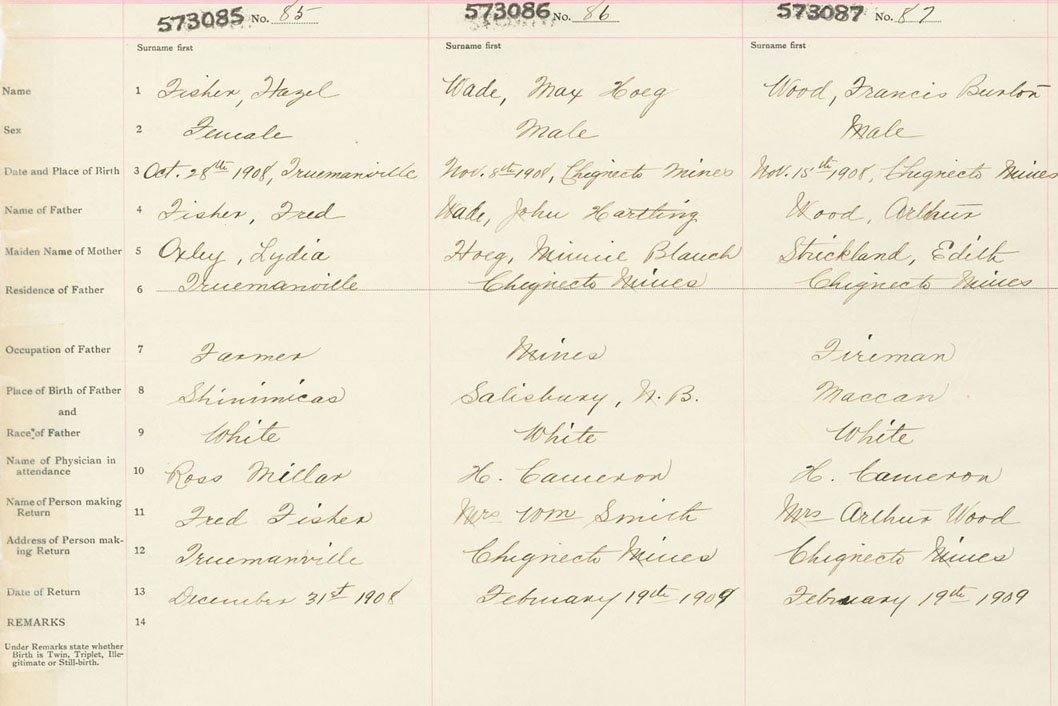 573085 No. 85 573086 No. 86 573087 No. 87
Surname first Surname first Surname first
Name 1 Fisher, Hazel Wade, Max Hoeg Wood, Francis Burton
Sex 2 Female Male Male
Date and Place of Birth 3 Oct. 28th 1908, Truemanville Nov. 8th 1908, Chignecto Mines Nov. 15th 1908, Chignecto Mines
Name of Father 4 Fisher, Fred Wade, John Hartling Wood, Arthur
Maiden Name of Mother 5 Oxley, Lydia Hoeg, Minnie Blanch Strickland, Edith
Residence of Father 6 Truemanville Chignecto Mines Chignecto Mines
Occupation of Father 7 Farmer Mines Fireman
Place of Birth of Father 8 Shinimicas Salisbury, N. B. Maccan
and
Race of Father 9 White White White
Name of Physician in
attendance 10 Ross Millar H. Cameron H. Cameron
Name of Person making
Return 11 Fred Fisher Mrs Wm Smith Mrs Arthur Wood
Address of Person mak-
ing Return 12 Truemanville Chignecto Mines Chignecto Mines
Date of Return 13 December 31st 1908 February 19th 1909 February 19th 1909
REMARKS 14
Under Remarks state whether
Birth is Twin, Triplet, Ille-
gitimate or Still-birth.